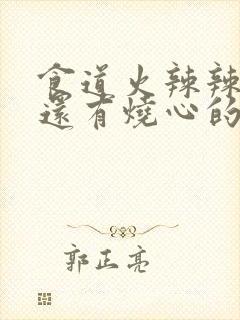 食道火辣辣
還有燒心的
郭正亮